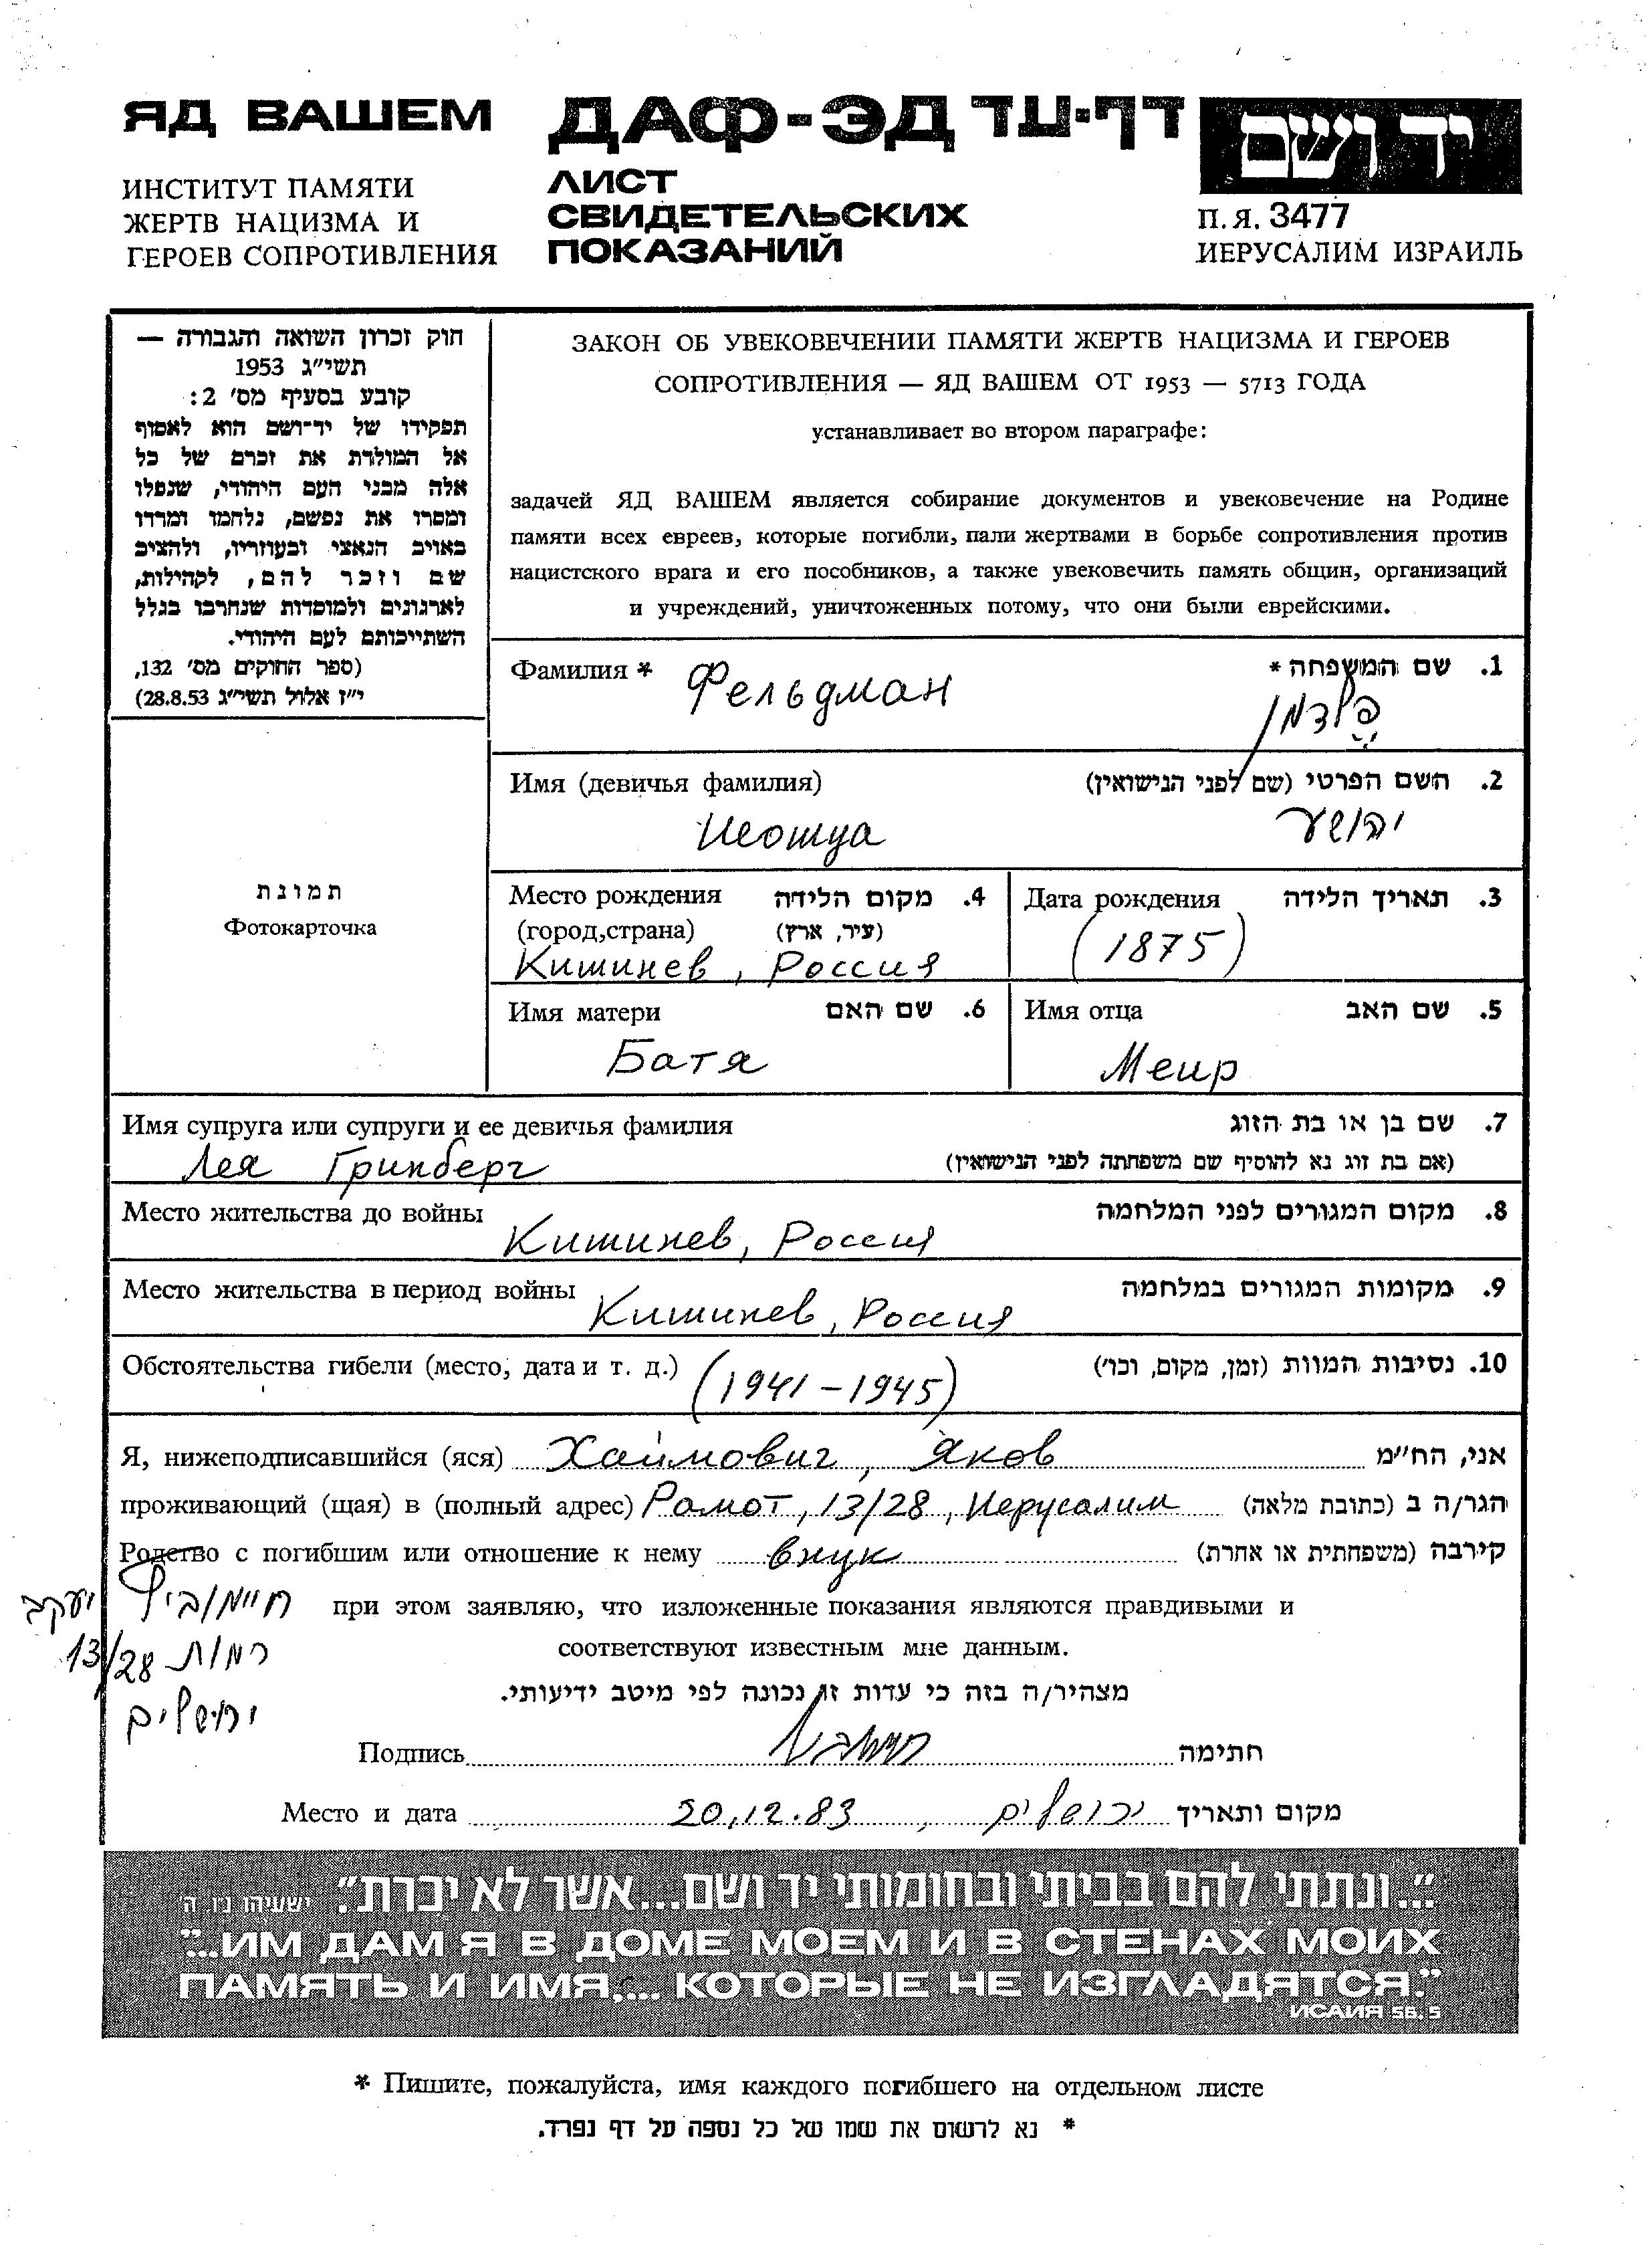 ЯД ВАШЕМ
ИНСТИТУТ ПАМЯТИ
ЖЕРТВ НАЦИЗМА И
ГЕРОЕВ СОПРОТИВЛЕНИЯ
ДАФ-ЭД דף-עד
ЛИСТ
СВИДЕТЕЛЬСКИХ
ПОКАЗАНИЙ
יד ושם
П.Я. 3477
ИЕРУСАЛИМ ИЗРАИЛЬ
חוק זכרון השואה והגבורה —
תשי״ג 1953
קובע בסעיף מס׳ 2:
תפקידו של יד־ושם הוא לאסוף
אל המולדת את זכרם של כל
אלה מבני העם היהודי, שנפלו
ומסרו את נפשם, נלחמו ומרדו
באויב הנאצי ובעוזריו, ולהציב
שם וזכר להם, לקהילות,
לארגונים ולמוסדות שנחרבו בגלל
השתייכותם לעם היהודי.
(ספר החוקים מס׳ 132,
י״ז אלול תשי״ג 28.8.53)
ЗАКОН ОБ УВЕКОВЕЧЕНИИ ПАМЯТИ ЖЕРТВ НАЦИЗМА И ГЕРОЕВ
СОПРОТИВЛЕНИЯ — ЯД ВАШЕМ ОТ 1953 — 5713 ГОДА
устанавливает во втором параграфе:
задачей ЯД ВАШЕМ является собирание документов и увековечение на Родине
памяти всех евреев, которые погибли, пали жертвами в борьбе сопротивления против
нацистского врага и его пособников, а также увековечить память общин, организаций
и учреждений, уничтоженных потому, что они были еврейскими.
Фамилия * Фельдман 1. שם המשפחה *
פלדמן
Имя (девичья фамилия) 2. השם הפרטי (שם לפני הנישואין)
Иеошуа יהושע
תמונת
Фотокарточка
Место рождения 4. מקום הלידה
(город,страна) (עיר, ארץ)
Кишинев, Россия
Дата рождения 3. תאריך הלידה
(1875)
Имя матери 6. שם האם
Батя
Имя отца 5. שם האב
Меир
Имя супруга или супруги и ее девичья фамилия 7. שם בן או בת הזוג
Лея Гринберг (אם בת זוג נא להוסיף שם משפחתה לפני הנישואין)
Место жительства до войны Кишинев, Россия 8. מקום המגורים לפני המלחמה
Место жительства в период войны Кишинев, Россия 9. מקומות המגורים במלחמה
Обстоятельства гибели (место, дата и т. д.) (1941-1945) 10. נסיבות המוות (זמן, מקום, וכו׳)
Я, нижеподписавшийся (яся) Хаймович, Яков אני, הח״מ
проживающий (щая) в (полный адрес) Рамот, 13/28, Иерусалим הגר/ה ב (כתובת מלאה)
Родство с погибшим или отношение к нему внук קירבה (משפחתית או אחרת)
חיימוביץ יעקב
רמות 13/28
ירושלים
при этом заявляю, что изложенные показания являются правдивыми и
соответствуют известным мне данным.
מצהיר/ה בזה כי עדות זו נכונה לפי מיטב ידיעותי.
Подпись חתימה
Место и дата 20.12.83, ירושלים מקום ותאריך
"...ונתתי להם בביתי ובחומותי יד ושם...אשר לא יכרת". ישעיהו נ״ו ה׳
"...ИМ ДАМ Я В ДОМЕ МОЕМ И В СТЕНАХ МОИХ
ПАМЯТЬ И ИМЯ.... КОТОРЫЕ НЕ ИЗГЛАДЯТСЯ."
ИСАИЯ 56, 5
* Пишите, пожалуйста, имя каждого погибшего на отдельном листе
* נא לרשום את שמו של כל נספה על דף נפרד.